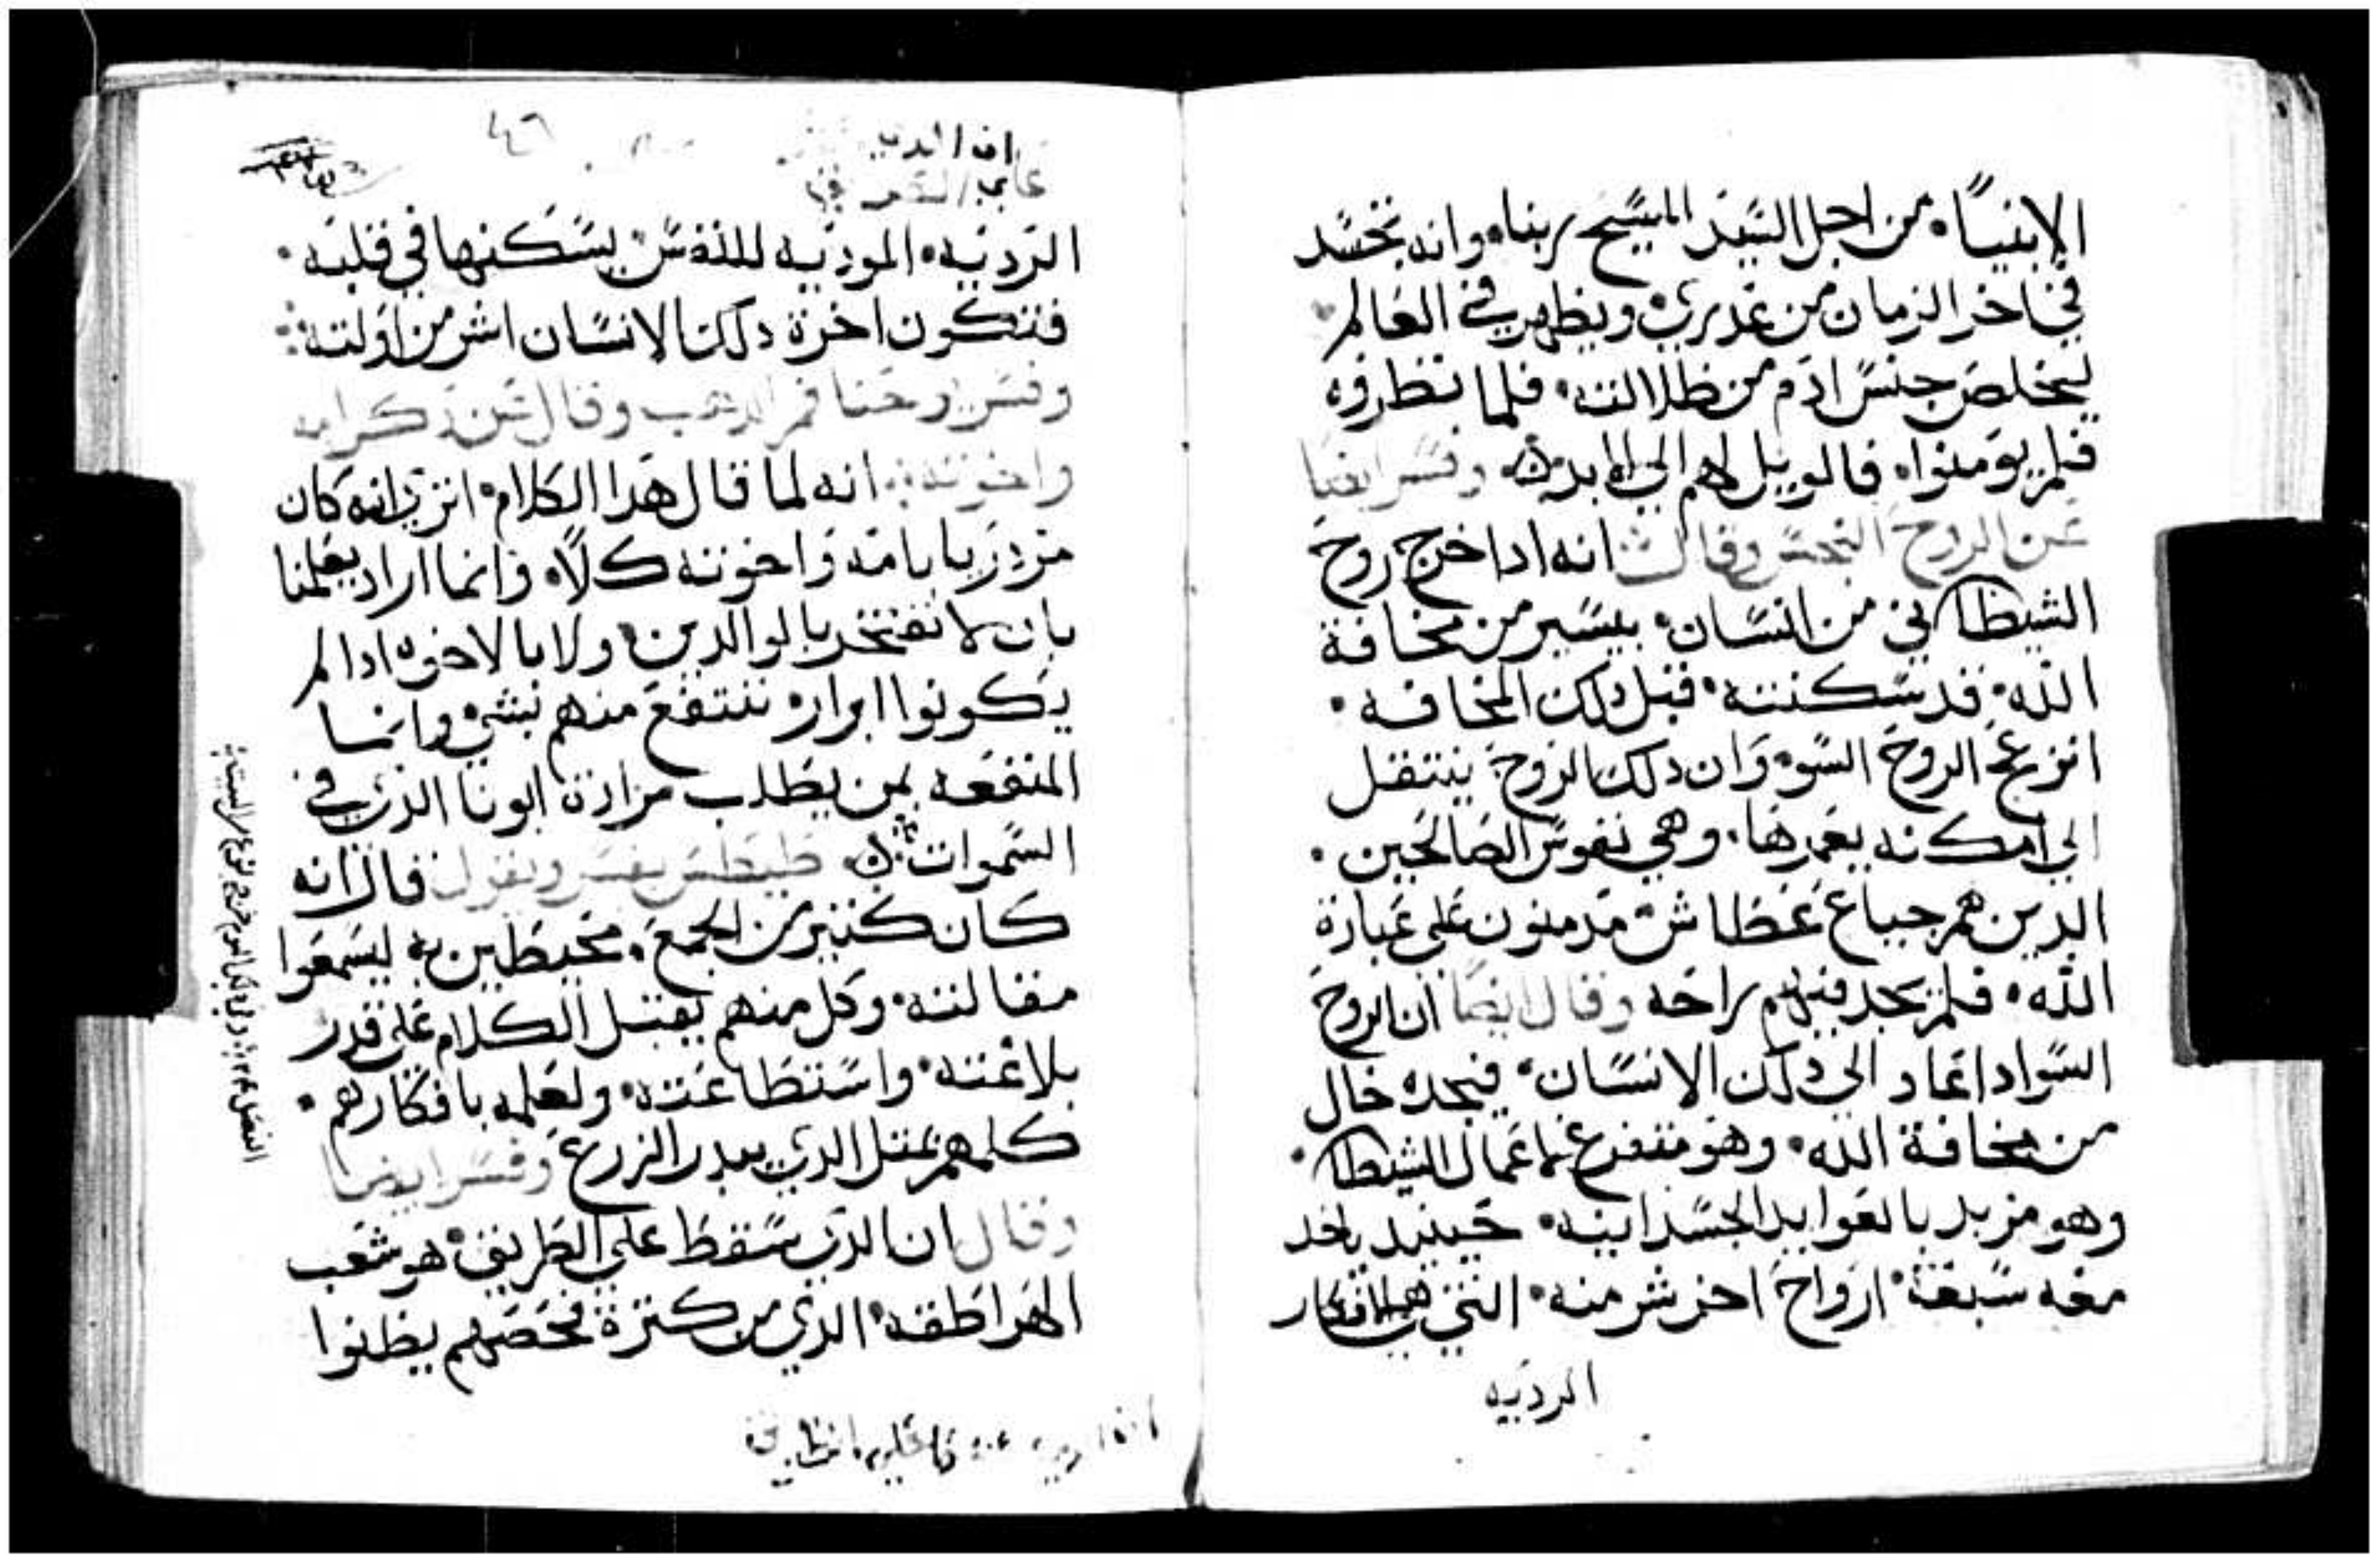 الانبيا من اجل السيد المسيح ربنا وانه تجسد
في اخر الزمان من عدري ويظهر في العالم
ليخلص جنس ادم من ظلالته فلما نظروه
فلم يومنوا فالويل لهم الي الابد وفسر ايضا
عن الروح النجس وقال انه ادا خرج روح
الشيطاني من انسان بيسير من مخافة
الله قد سكنته قبل دلك المخافه
انزعج الروح السو وان دلك الروح ينتقل
الي امكنه يعمرها وهي نفوس الصالحين
الدين هم جياع عطاش مدمنون علي عبادة
الله فلم يجد فيهم راحه وقال ايضا ان الروح
السو ادا عاد الي دلك الانسان فيجده خال
من مخافة الله وهو متفرغ لاعمال الشيطان
وهو مزبد بالعوايد الجسدانيه حينيد ياخد
معه سبعة ارواح اخر شر منه التي هي الافكار
الرديه
٤٦
الرديه الموديه للنفس يسكنها في قلبه
فتكون اخرة دلك الانسان اشر من اولته
وفسر يوحنا فم الدهب وقال عن دكر امه
واخوته انه لما قال هدا الكلام اتري انه كان
مزدريا بامه واخوته كلا وانما اراد يعلمنا
بان لا نفتخر بالوالدين ولا بالاخوه ادا لم
يكونوا ابرار ننتفع منهم بشي وانما
المنفعه لمن يطلب مرادة ابونا الدي في
السموات طيطس يفسر ويقول قال انه
كان كثير من الجمع محيطين به ليسمعوا
مقالته وكل منهم يقبل الكلام علي قدر
بلاغته واستطاعته ولعلمه بافكارهم
كلمهم بمتل الدي يبدر الزرع وفسر ايضا
وقال ان الدي سقط علي الطريق هو شعب
الهراطقه الدي من كترة فحصهم يظنوا